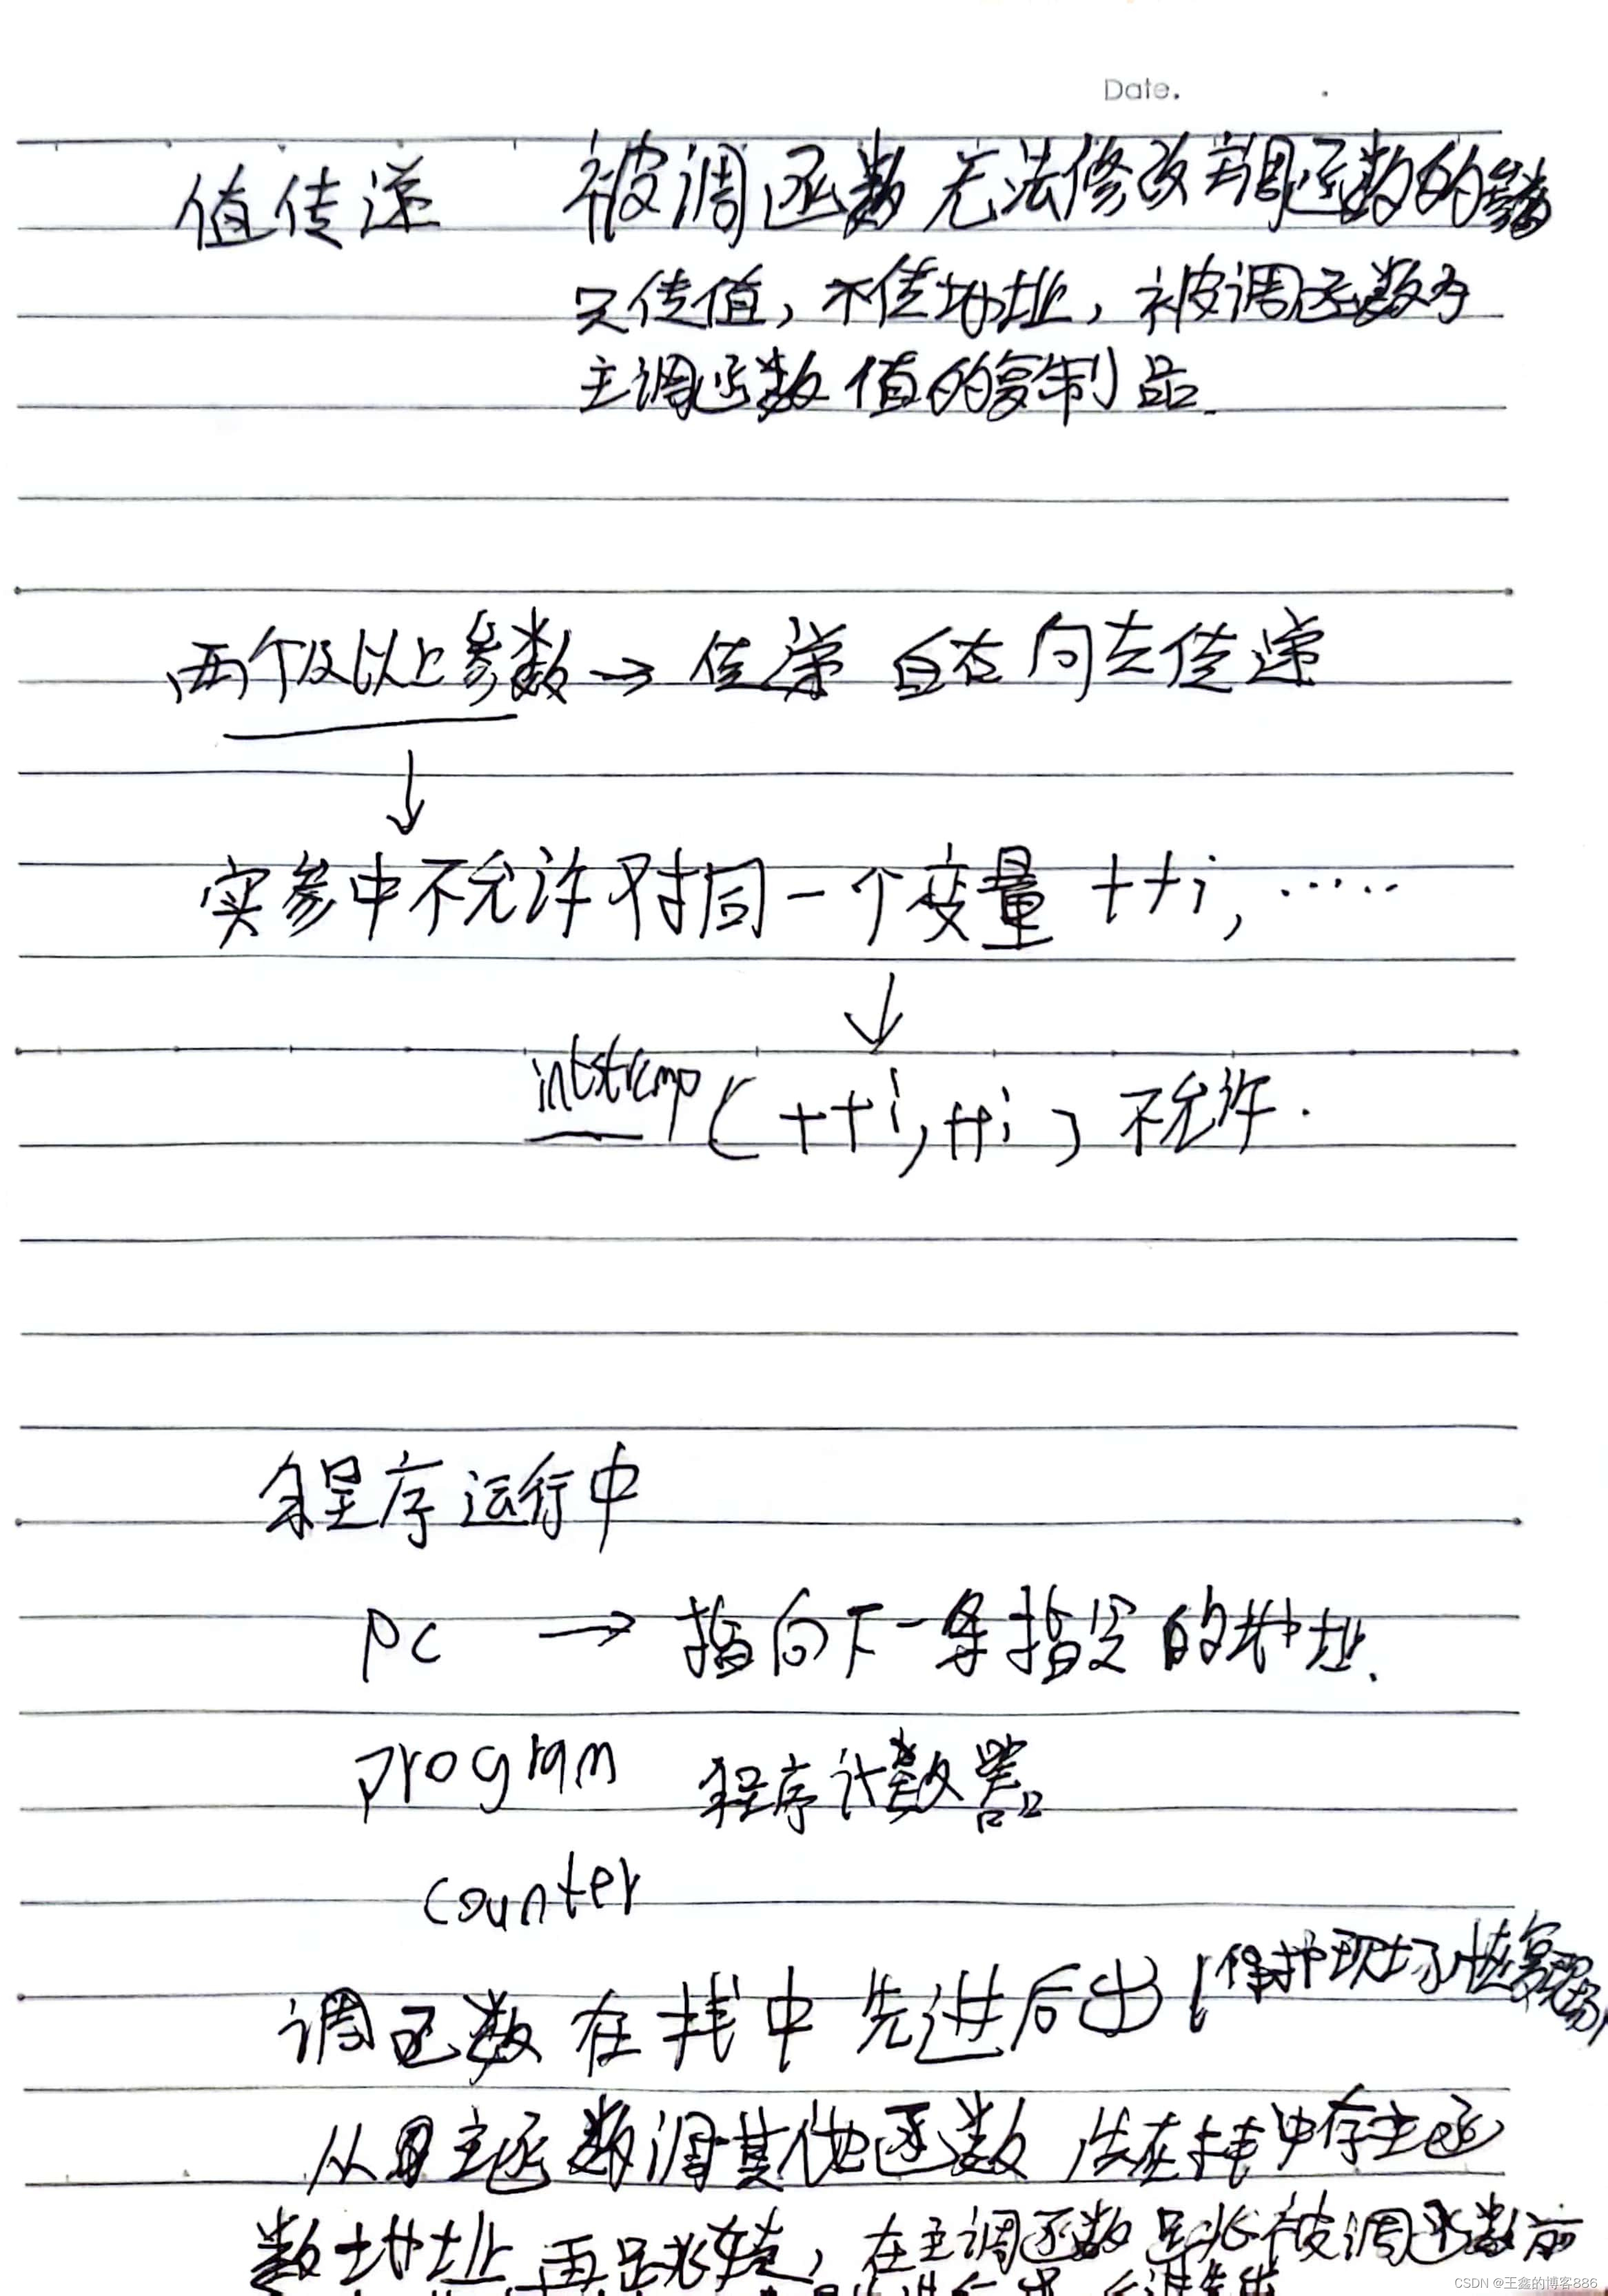 Date.
值传递 被调函数无法修改主调函数的参数
只传值，不传地址，被调函数为
主调函数值的复制品.
两个及以上参数→传递 自右向左传递
↓
实参中不允许对同一个变量 ++i, ……
↓
intstrcmp(++i, ++i) 不允许.
程序运行中
pc → 指向下一条指定的地址.
program 程序计数器
counter
调函数在栈中先进后出(保护现场,恢复现场)
从主函数调其他函数 先在栈中存主函
数地址 再跳转, 在主调函数跳被调函数前
CSDN @王鑫的博客886